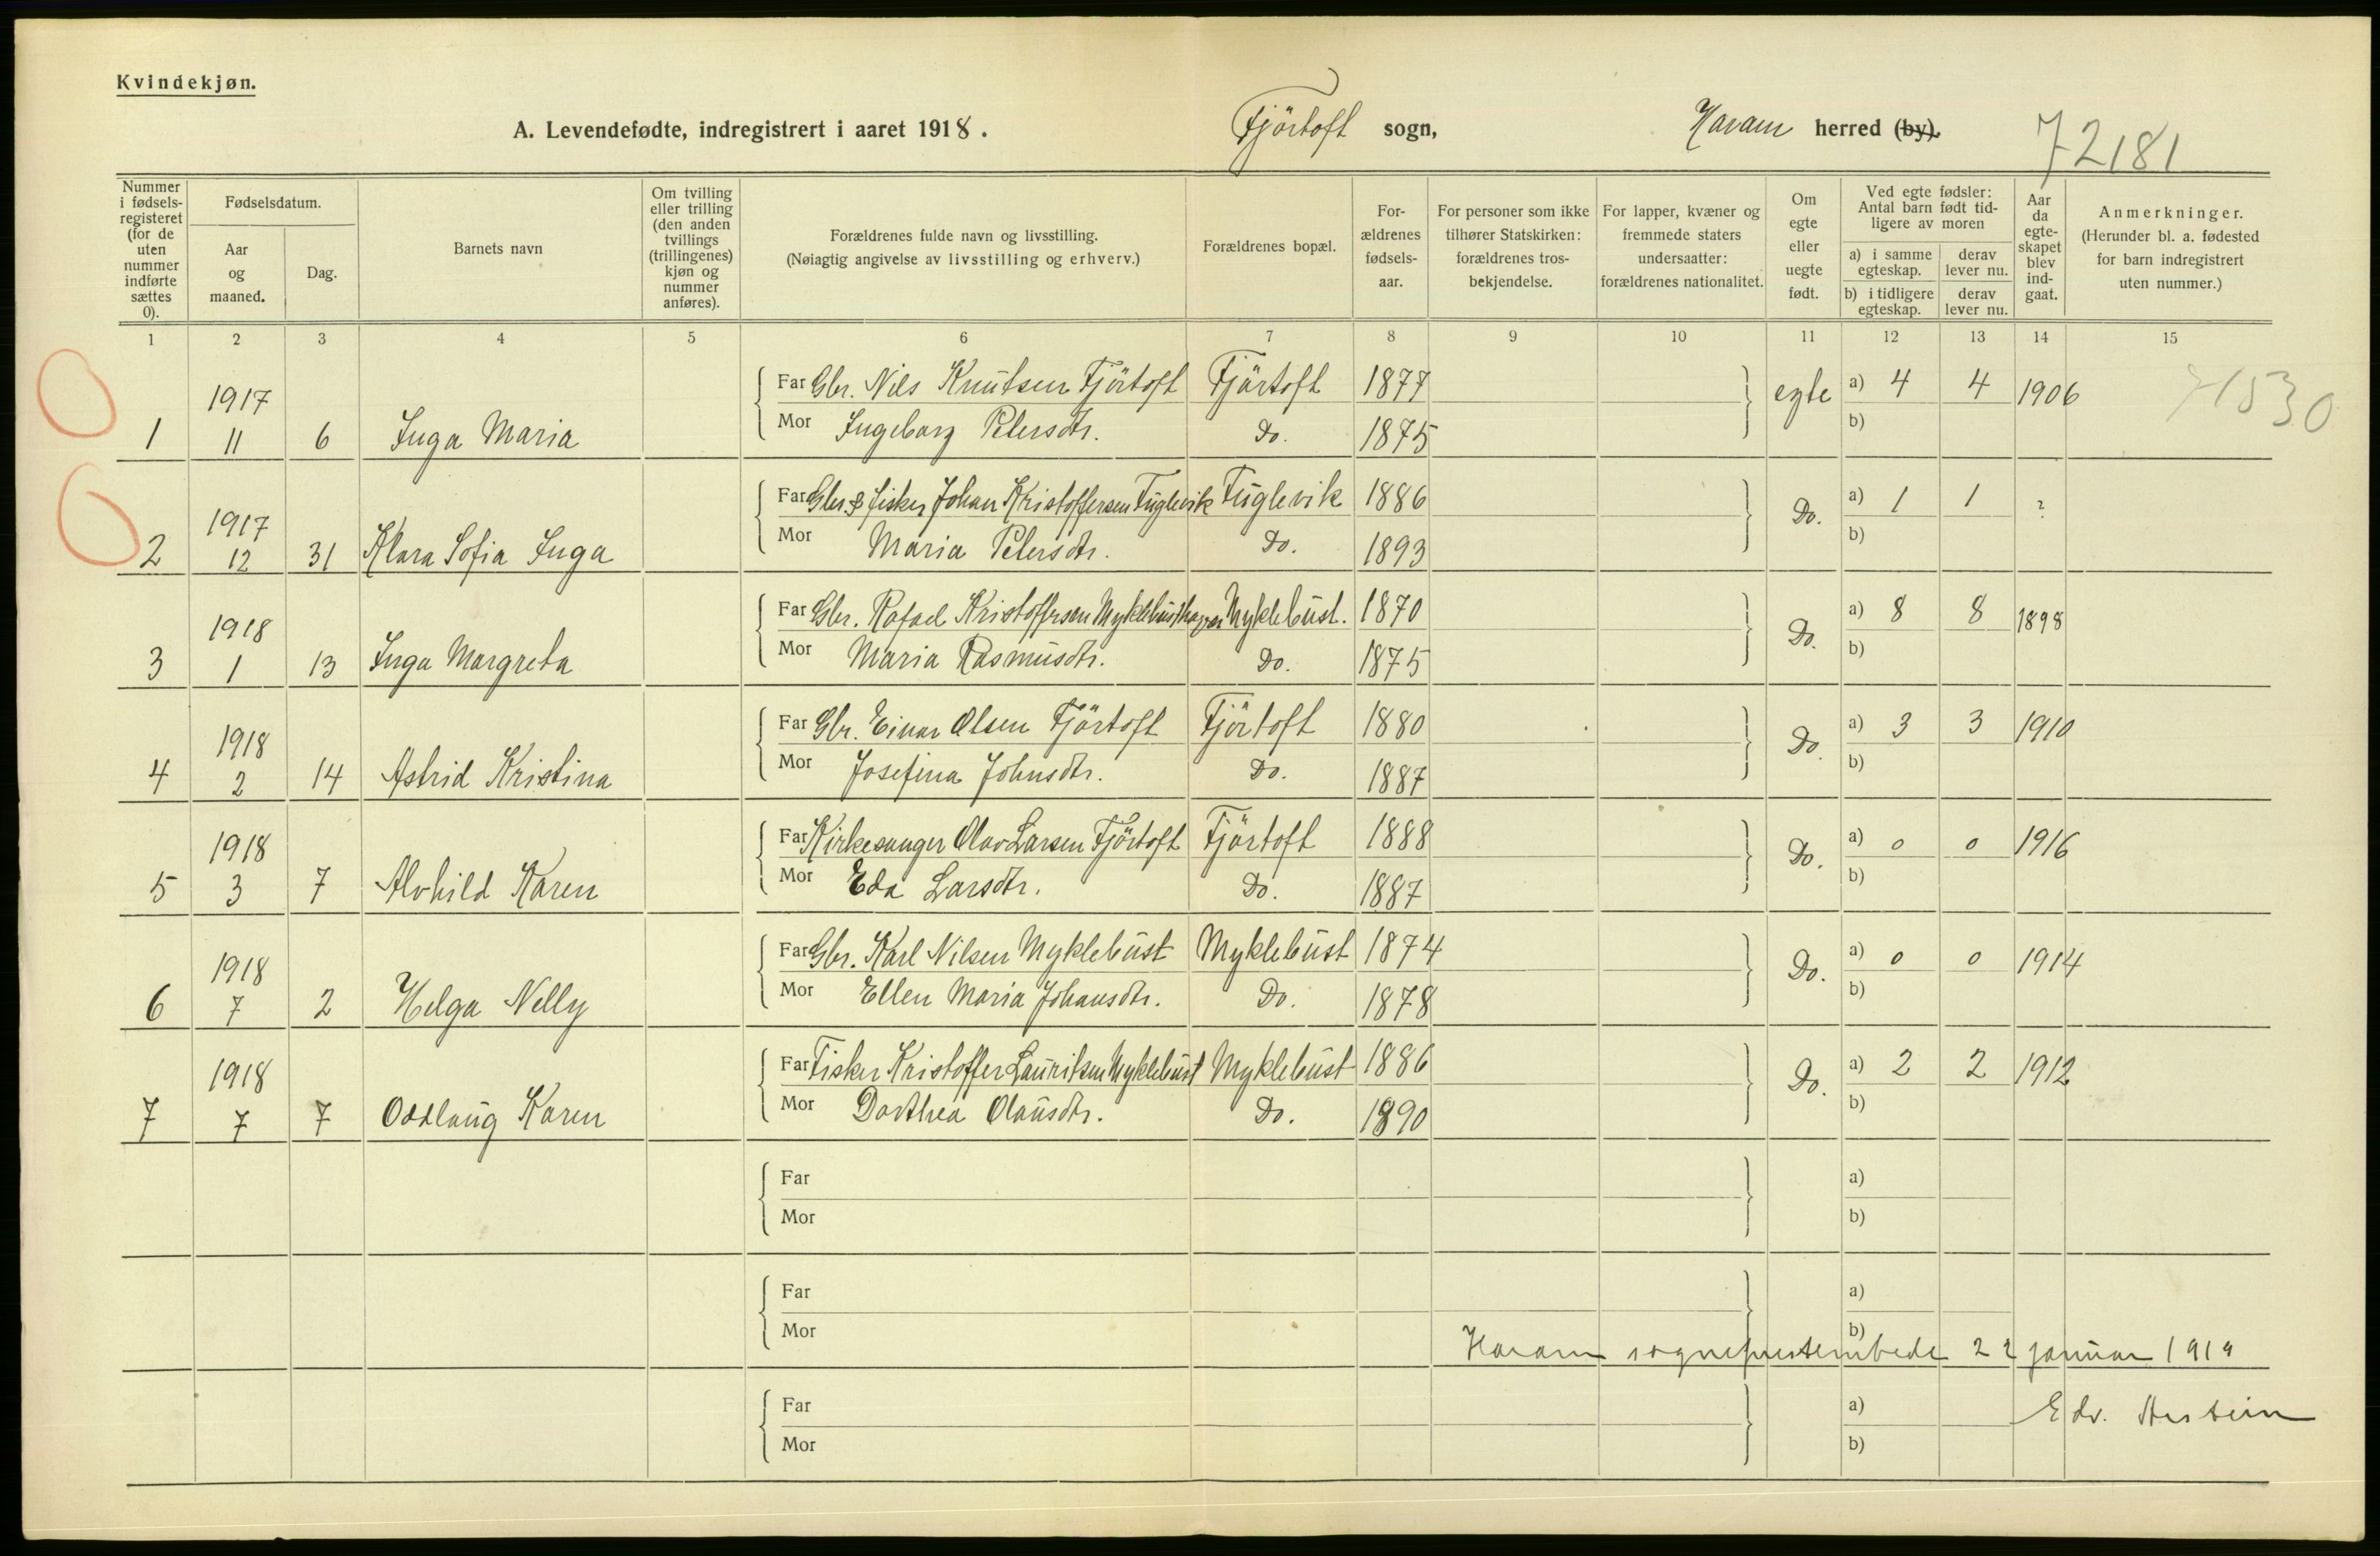 Kvindekjøn.
A. Levendefødte, indregistrert i aaret 1918. Fjörtoft sogn, Haram herred (by).
72181
Nummer i fødsels-registeret (for de uten nummer indførte sættes 0).
Fødselsdatum.
Aar og maaned.
Dag.
Barnets navn
Om tvilling eller trilling (den anden tvillings (trillingenes) kjøn og nummer anføres).
Forældrenes fulde navn og livsstilling.
(Nøiagtig angivelse av livsstilling og erhverv.)
Forældrenes bopæl.
For-ældrenes fødsels-aar.
For personer som ikke tilhører Statskirken: forældrenes tros-bekjendelse.
For lapper, kvæner og fremmede staters undersaatter: forældrenes nationalitet.
Om egte eller uegte født.
Ved egte fødsler: Antal barn født tid-ligere av moren
a) i samme egteskap.
derav lever nu.
b) i tidligere egteskap.
derav lever nu.
Aar da egte-skapet blev ind-gaat.
Anmerkninger.
(Herunder bl. a. fødested for barn indregistrert uten nummer.)
1 2 3 4 5 6 7 8 9 10 11 12 13 14 15
1917 Far Gbr. Nils Knutsen Fjörtoft Fjörtoft 1877 egte a) 4 4 1906
1 11 6 Inga Maria Mor Ingeborg Petersdtr. Do. 1875 b)
1917 Far Gbr. & fisker Johan Kristoffersen Fuglevik Fuglevik 1886 Do. a) 1 1 ?
2 12 31 Klara Sofia Inga Mor Maria Petersdtr. Do. 1893 b)
1918 Far Gbr. Rafael Kristoffersen Myklebust. 1870 Do. a) 8 8 1898
3 1 13 Inga Margreta Mor Maria Rasmusdtr. Do. 1875 b)
1918 Far Gbr. Einar Olsen Fjörtoft Fjörtoft 1880 Do. a) 3 3 1910
4 2 14 Astrid Kristina Mor Josefina Johnsdtr. Do. 1887 b)
1918 Far Kirkesanger Olav Larsen Fjörtoft Fjörtoft 1888 Do. a) 0 0 1916
5 3 7 Alvhild Karen Mor Eda Larsdtr. Do. 1887 b)
1918 Far Gbr. Karl Nilsen Myklebust Myklebust 1874 Do. a) 0 0 1914
6 7 2 Helga Nelly Mor Ellen Maria Johansdtr. Do. 1878 b)
1918 Far Fisker Kristoffer Lauritsen Myklebust Myklebust 1886 Do. a) 2 2 1912
7 7 7 Oddlaug Karen Mor Dorthea Olausdtr. Do. 1890 b)
Far a)
Mor b)
Far a)
Mor b)
Haram sogneprestembede 22 januar 1919
Far a)
Edv.
Mor b)